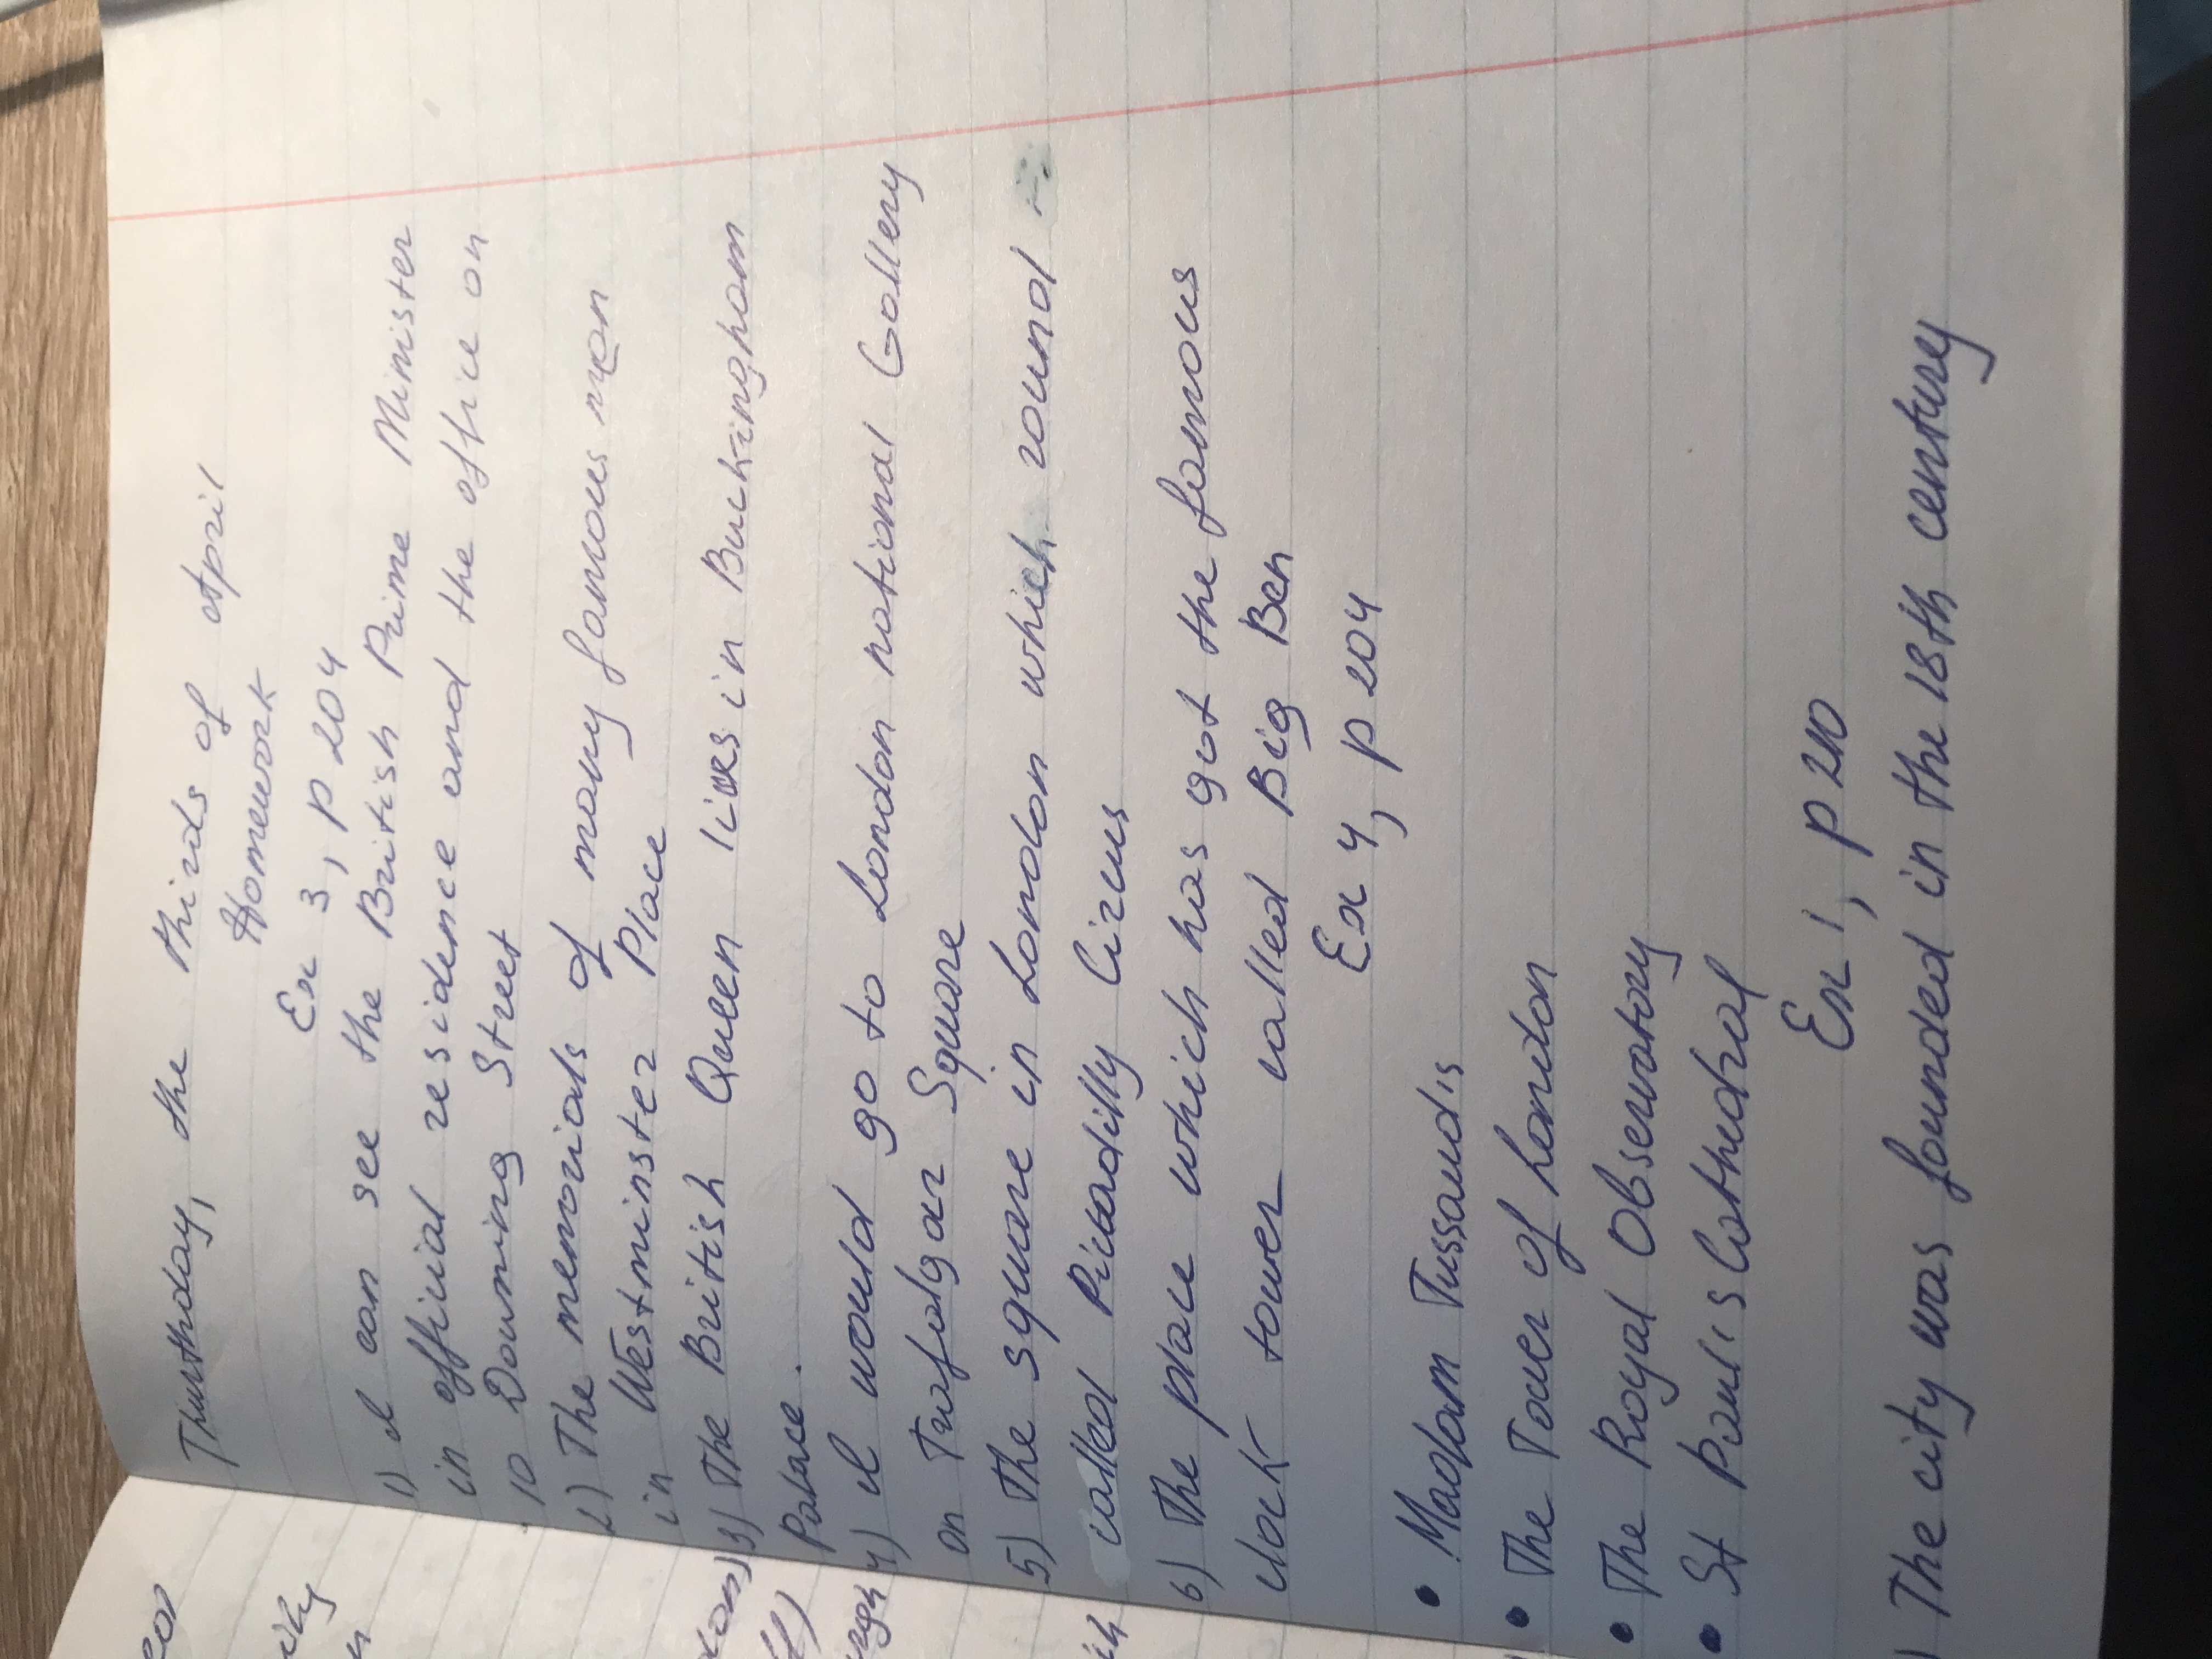 Thursthday, the thirds of April
Homework
Ex 3, p 204
1) I can see the British Prime Minister
in official residence and the office on
10 Downing Street
2) The memorials of many famous men
in Westminster Place
3) The British Queen lives in Buckingham
Palace.
4) I would go to London national Gallery
on Trafalgar Square
5) The square in London which round
called Piccadilly Circus
6) The place which has got the famous
clock tower called Big Ben
Ex 4, p 204
• Madam Tussaud's
• The Tower of London
• The Royal Observatory
• St Paul's Cathedral
Ex 1, p 210
) The city was founded in the 18th century